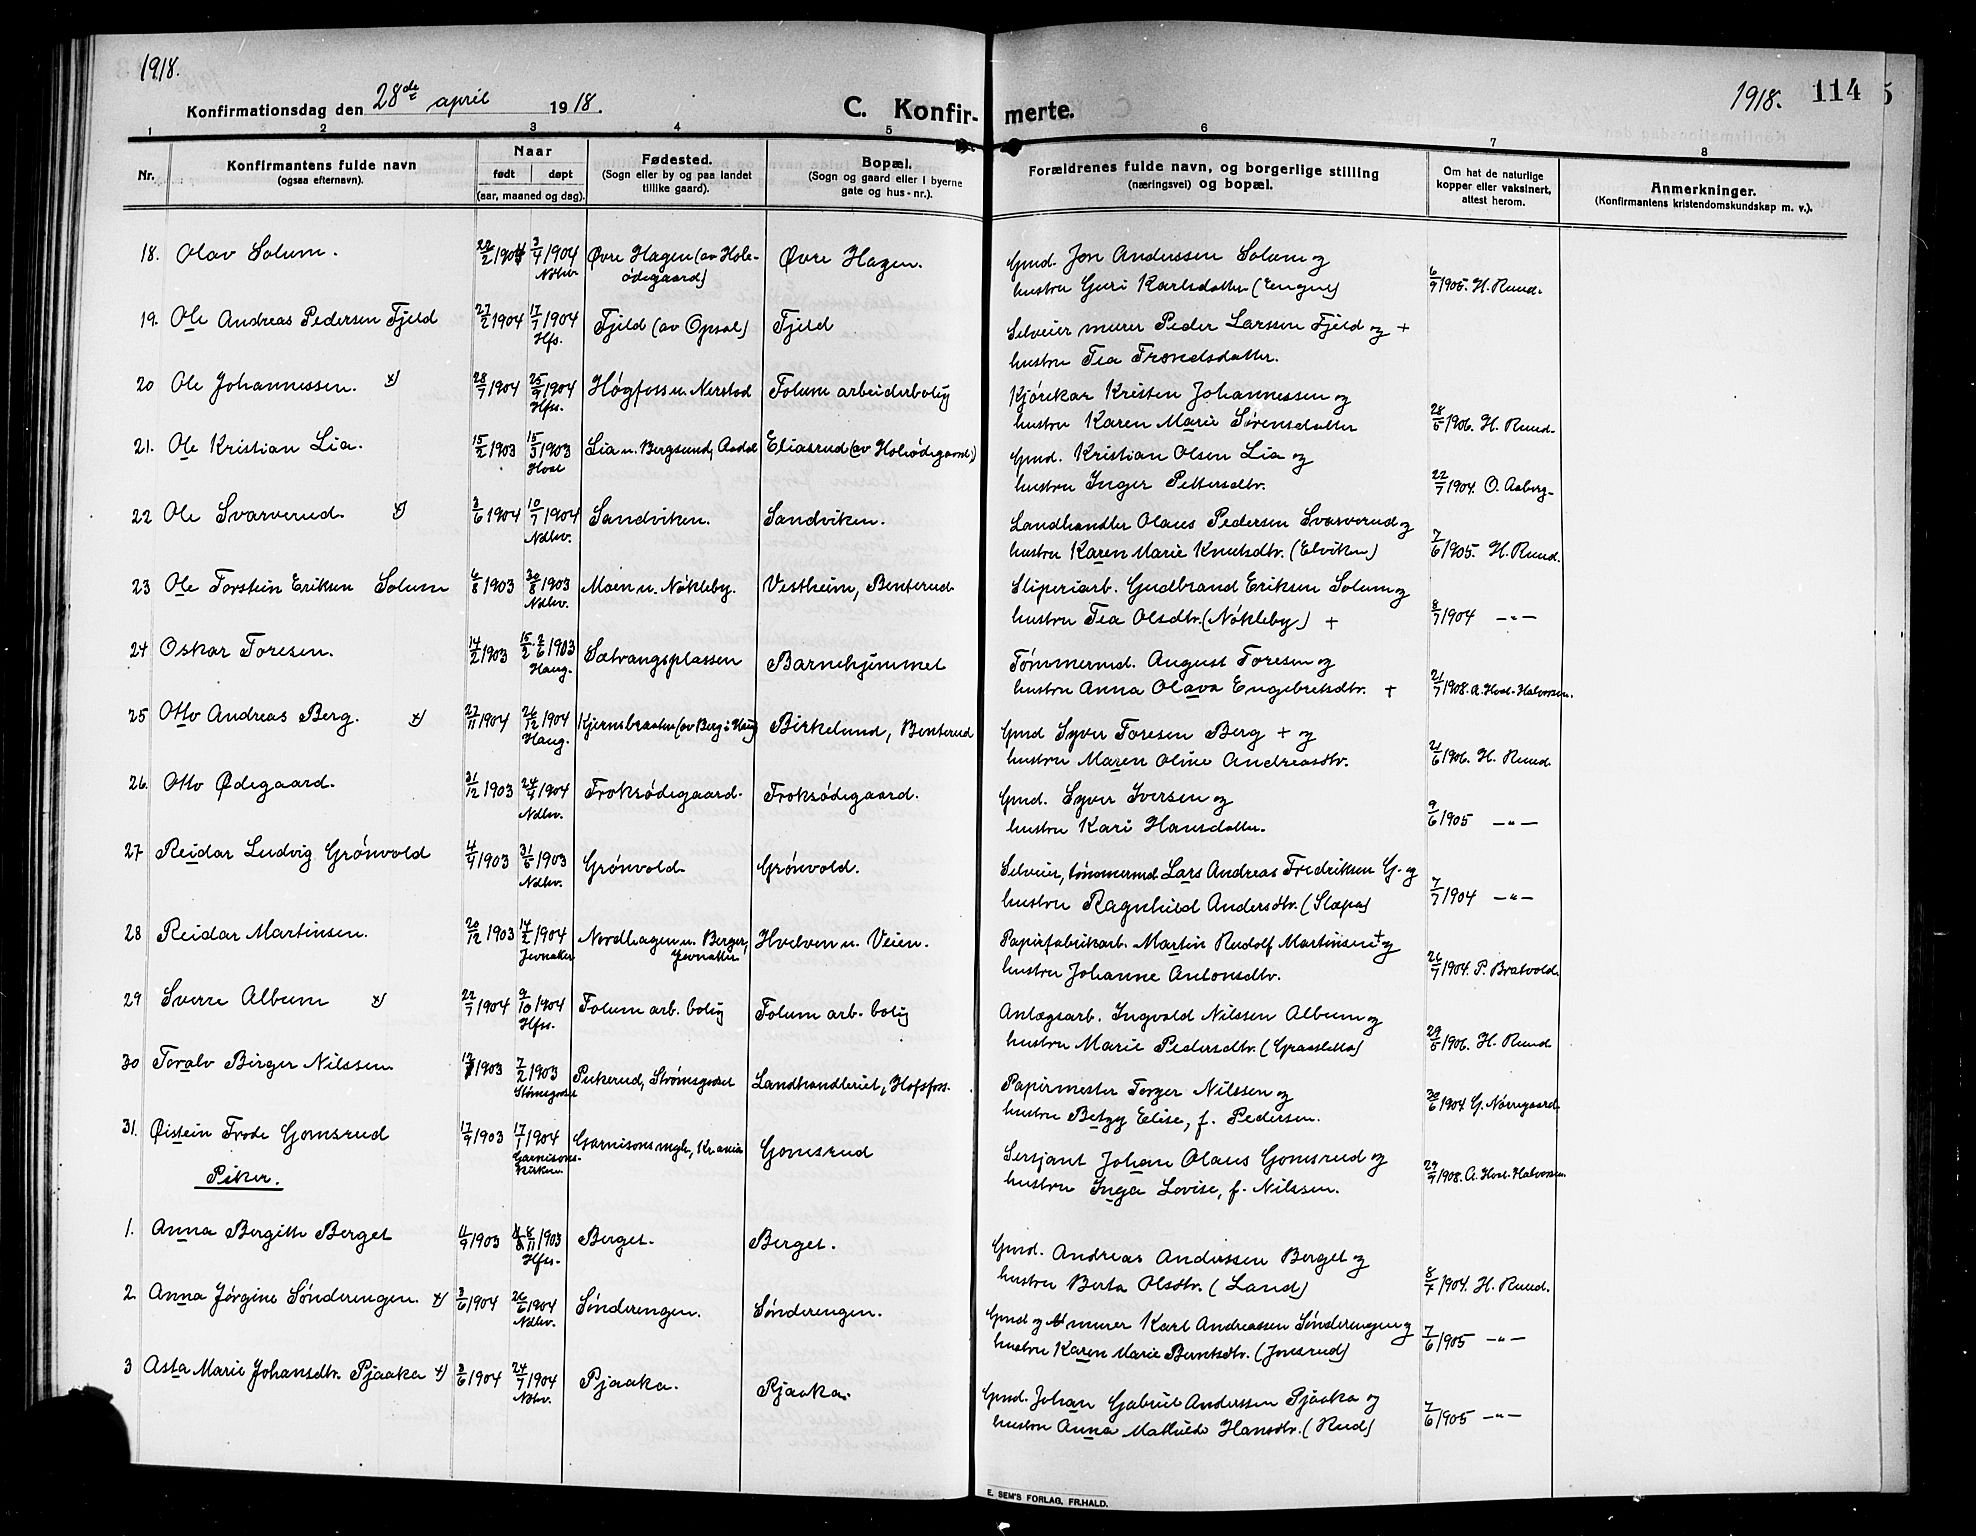 1918.
Konfirmationsdag den 28de april 1918.
C. Konfirmerte.
1918. 114
1 2 3 4 5 6 7 8
Nr.
Konfirmantens fulde navn
(ogsaa efternavn).
Naar
født døpt
(aar, maaned og dag).
Fødested.
(Sogn eller by og paa landet
tillike gaard).
Bopæl.
(Sogn og gaard eller i byerne
gate og hus-nr.).
Forældrenes fulde navn, og borgerlige stilling
(næringsvei) og bopæl.
Om hat de naturlige
kopper eller vaksinert,
attest herom.
Anmerkninger.
(Konfirmantens kristendomskundskap m. v.).
18. Olav Solum. 22/2 1904 3/4 1904 Øvre Hagen (av Hole- Øvre Hagen. Gmd. Jon Anderssen Solum og
Ndhv. ødegaard) hustru Guri Karlsdatter (Engne) 6/9 1905. H. Ruud.
19. Ole Andreas Pedersen Fjeld 27/2 1904 17/7 1904 Fjeld (av Opsal) Fjeld Selveier murer Peder Larssen Fjeld og +
Hfs. hustru Tea Trondsdatter.
20 Ole Johannessen. x) 28/7 1904 25/9 1904 Høgfoss u. Nerstad Folum arbeiderbolig Kjørekar Kristen Johannessen og
Hfss. hustru Karen Marie Sørensdatter 28/5 1906. H. Ruud.
21. Ole Kristian Lia. 15/2 1903 15/3 1903 Lia u. Bergsund, Aadal Eliasrud (av Holeødegaard) Gmd. Kristian Olsen Lia og
Hval hustru Inger Pettersdtr. 22/7 1904. O. Aaberg-
22 Ole Svarverud. x) 3/6 1904 10/7 1904 Sandviken. Sandviken. Landhandler Olaus Pedersen Svarverud og
Ndhv. hustru Karen Marie Knutsdtr. (Elviken) 7/6 1905. H. Ruud.
23 Ole Torstein Eriksen Solum 6/8 1903 30/8 1903 Moen u. Nøkleby. Vestheim, Benterud Sliperiarb. Gudbrand Eriksen Solum og
Ndhv. hustru Tea Olsdtr. (Nøkleby) + 8/7 1904 -"-
24 Oskar Toresen. 14/2 1903 15/2 2/6 1903 Sætrangsplassen Barnehjemmet Tømmermd. August Toresen og
Haug. hustru Anna Olava Engebretsdtr. + 21/7 1908. A. Hval-Halvorsen.
25 Otto Andreas Berg. x) 27/11 1904 26/12 1904 Kjernsbraaten (av Berg i Haug) Birkelund, Benterud Gmd Syver Toresen Berg + og
Haug. hustru Maren Oline Andreasdtr. 21/6 1906. H. Ruud
26. Otto Ødegaard. 31/12 1903 24/4 1904 Troksødegaard. Troksødegaard. Gmd. Syver Iversen og
Ndhv. hustru Kari Hansdatter. 9/6 1905 -"-
27 Reidar Ludvig Grønvold 4/4 1903 31/5 1903 Grønvold. Grønvold. Selveier, tømmermd Lars Andreas Fredriksen G. og
Ndhv. hustru Ragnhild Andersdtr. (Slæpa) 7/7 1904 -"-
28 Reidar Martinsen. 20/12 1903 14/2 1904 Nordhagen u. Berger, Hvelven u. Veien. Papirfabrikarb. Martin Rudolf Martinsen + og
Jevnaker Jevnaker hustru Johanne Antonsdtr. 26/7 1904. P. Bratvold.
29 Sverre Album x) 22/7 1904 9/10 1904 Folum arb. bolig Folum arb. bolig Anlægsarb. Ingvald Nilssen Album og
Hfss. hustru Marie Pedersdtr. (Graasletta) 29/5 1906. H. Ruud
30 Toralv Birger Nilssen 1903 7/2 1903 Pukerud, Strømsgodset Landhandleriet, Hofsfoss. Papirmester Torger Nilssen og
Strømsgodset hustru Betzy Elise, f. Pedersen. 30/6 1904 G. Nørregaard
31. Øistein Frode Gomsrud 17/9 1903 17/1 1904 Garnisons mgh., Kr.ania Gomsrud Sersjant Johan Olaus Gomsrud og
Garnisons-kirken hustru Inga Lovise, f. Nilssen. 29/9 1908. A. Hval-Halvorsen.
Piker.
1. Anna Bergitte Berget 11/9 1903 8/11 1903 Berget. Berget. Gmd. Andreas Anderssen Berget og
Hfss. hustru Berta Olsdtr. (Land) 8/7 1904. H. Ruud.
2. Anna Jørgine Sønderengen. x) 3/6 1904 26/6 1904 Sønderengen. Sønderengen. Gmd og murer Karl Andreassen Sønderengen og
Ndhv. hustru Karen Marie Berntsdtr. (Jonsrud) 7/6 1905 -"-
3 Asta Marie Johansdtr. Pjaaka x) 3/6 1904 24/7 1904 Pjaaka. Pjaaka. Gmd. Johan Gabriel Anderssen Pjaaka og
Ndhv. hustru Anna Mathilde Hansdtr. (Rud) 7/6 1905 -"-
E. SEM'S FORLAG, FR.HALD.